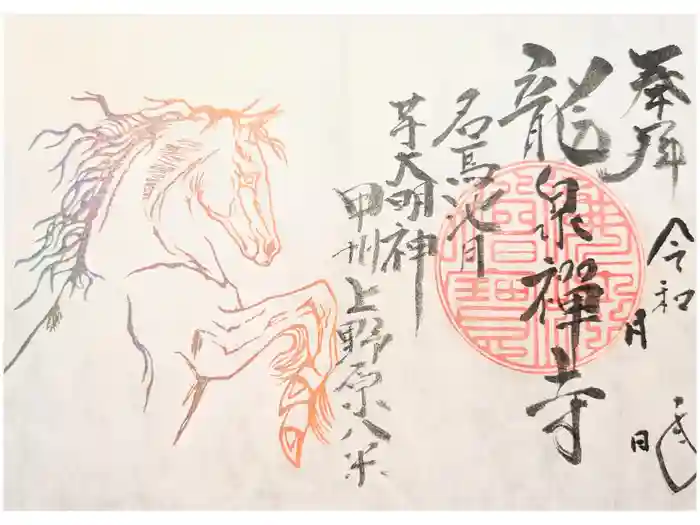 奉拝
令和
月
日
龍泉禪寺
名馬池月
芋大明神
甲州上野原八米